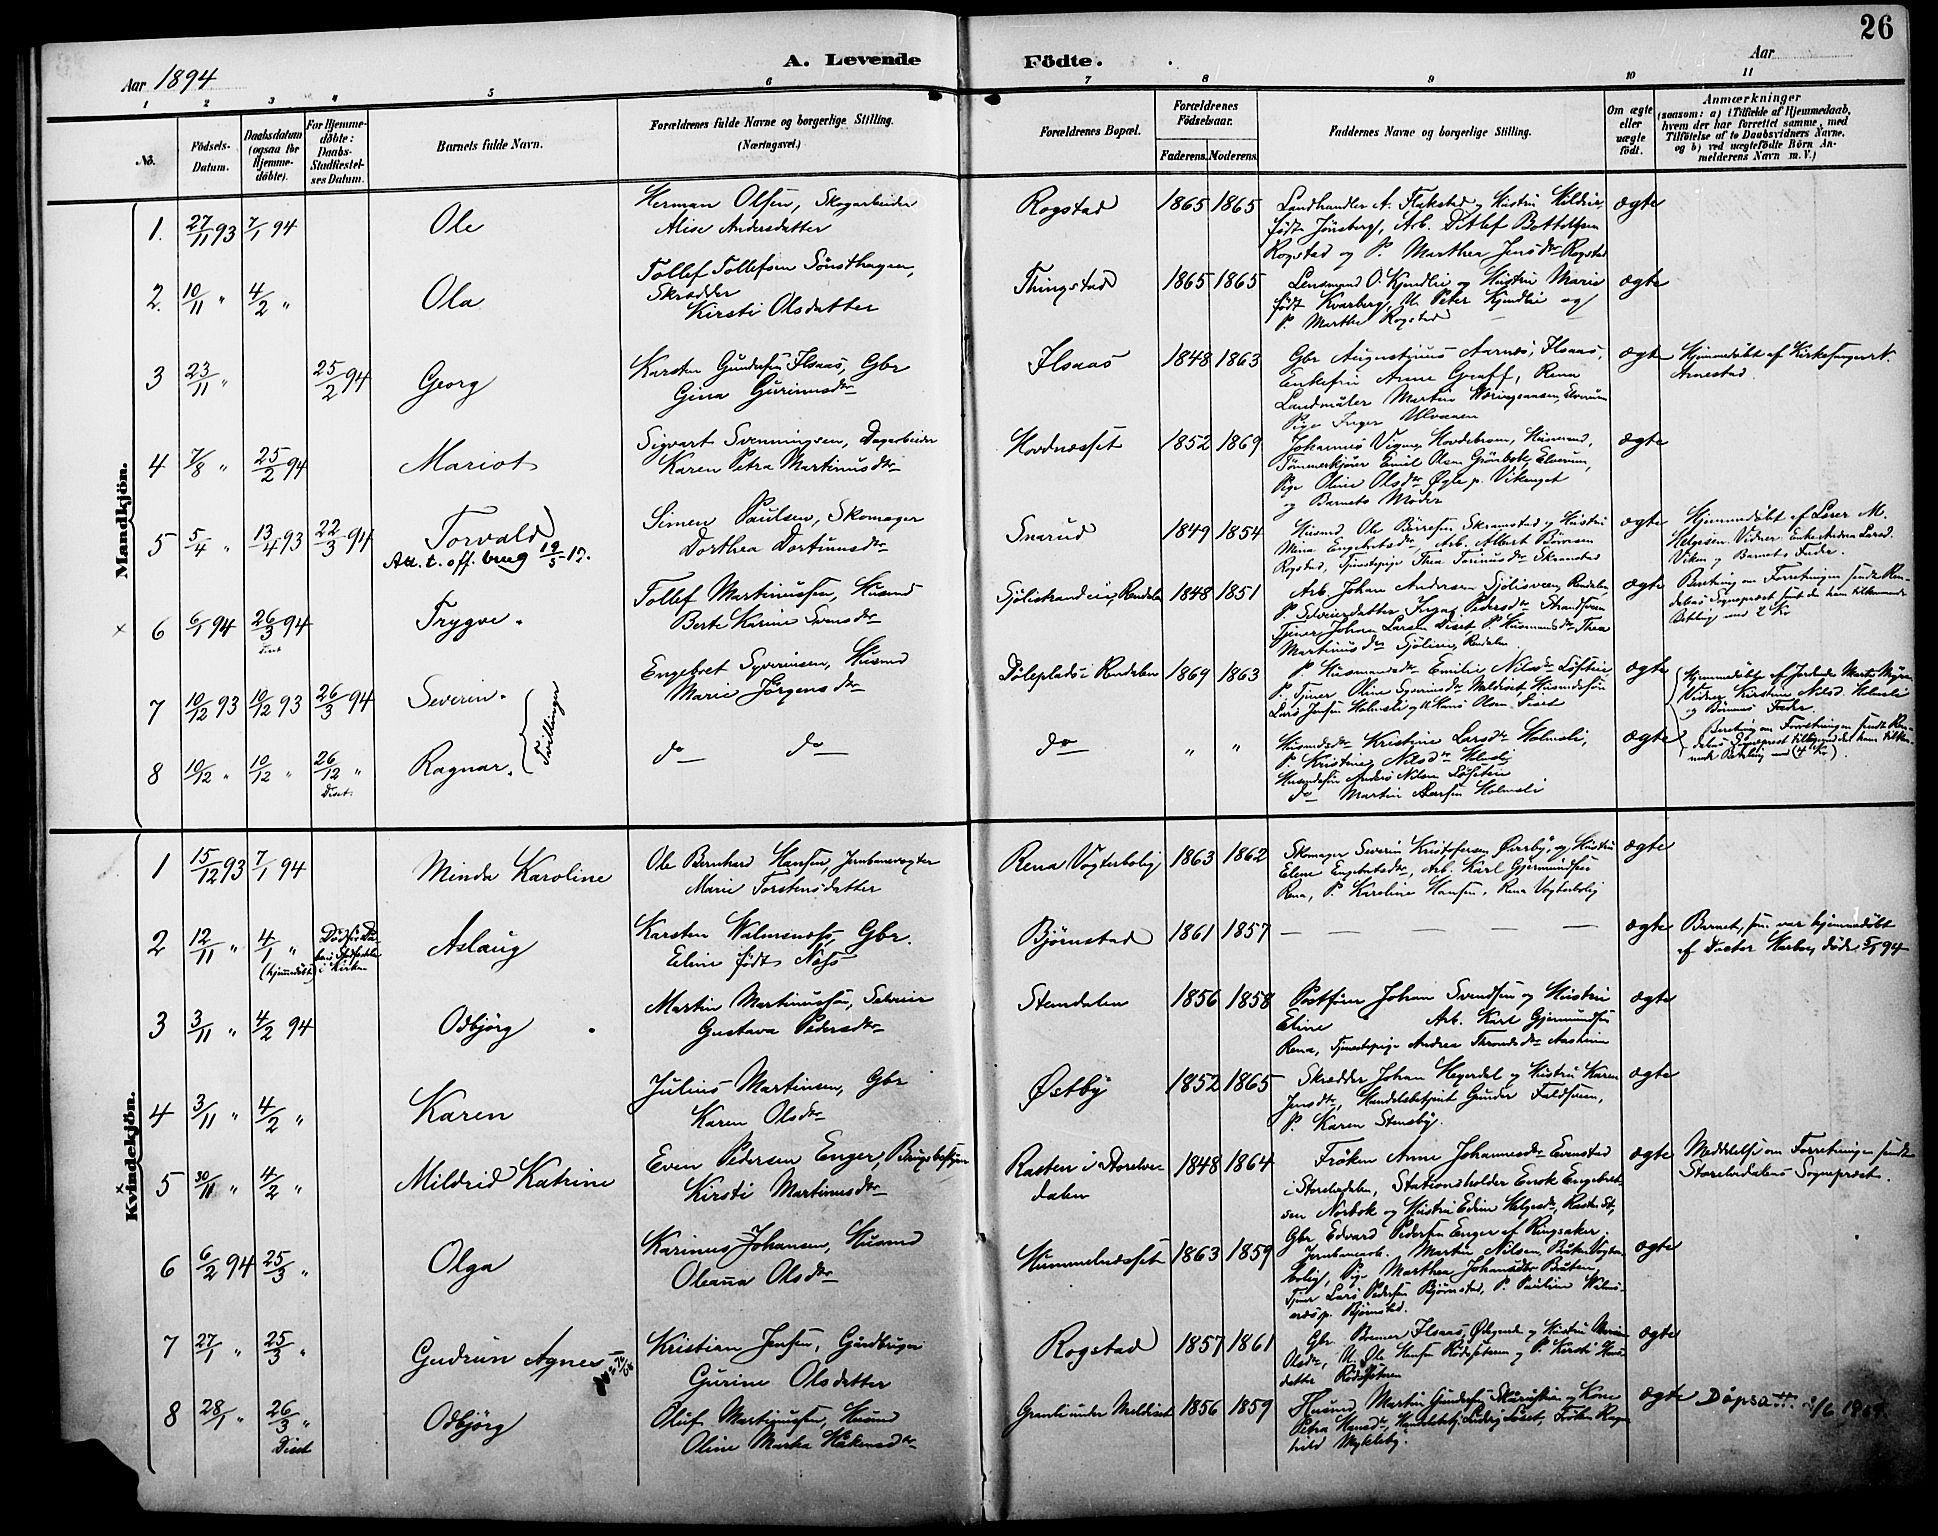 26
Aar 1894
A. Levende Födte.
Aar
1 2 3 4 5 6 7 8 9 10 11
No.
Födsels-Datum.
Daabsdatum (ogsaa for Hjemme-döbte).
For Hjemme-döbte: Daabs-Stadfæstel-ses Datum.
Barnets fulde Navn.
Forældrenes fulde Navne og borgerlige Stilling. (Næringsvei.)
Forældrenes Bopæl.
Forældrenes Födselsaar.
Faderens. Moderens.
Faddernes Navne og borgerlige Stilling.
Om ægte eller uægte födt.
Anmærkninger
(saasom: a) i Tilfælde af Hjemmedaab, hvem der har forrettet samme, med Tilföielse af to Daabsvidners Navne, og b) ved uægtefödte Börn An-melderens Navn m. V.)
Mandkjön.
1. 27/11 93 7/1 94 Ole
Herman Olsen, Skogarbeider
Alise Andersdatter
Rogstad 1865 1865
Landhandler A. Flakstad og Hustru
født Jönsberg, Arb. Ditlef
Rogstad og P. Marthea Jensdr Rogstad
ægte
2. 10/11 " 4/2 " Ola
Tollef Tollefsen Sönsthagen,
Skrædder
Kirsti Olsdatter
Thingstad 1865 1865
Lensmand O. Kjendlie og Hustru Marie
født Kvarberg, Peter Kjendlie og
P. Marthe Rogstad
ægte
3 23/11 " 25/2 94 Georg
Karsten Gundersen Ilsaas, Gbr
Gina
Ilsaas 1848 1863
Gbr Augustinus Aarnæs, Ilsaas,
Enkefru Anne Graff, Rena
Landmåler Martin Elverum
Pige Inger Ulvaaen
ægte
Hjemmedøbt af Kirkesanger N.
Arnestad.
4 7/8 " 25/2 94 Mariot
Sigvart Svenningsen, Dagarbeider
Karen Petra Martinusdr
Hovdnæsset 1852 1869
Johannes Vigner Hovdebroen, Husmand,
Tømmerkjører Emil Olsen Grönbek, Elverum,
Pige Oline Olsdr Øgle p. Vikenget
og Barnets Moder
ægte
5 5/4 " 13/4 93 22/3 94 Torvald
Att. t. off. brug 19/5 -17.
Simen Paulsen, Skomager
Dorthea
Snarud 1849 1854
Husmd. Ole Skramstad og Hustru
Mina Engebretsdr, Arb. Albert
Rogstad, Tjenestepige Thea Skramstad
ægte
Hjemmedøbt af Lærer M.
Helgesen. Vidner: Enke Andrea Larsd.
Viken og Barnets Fader.
6 6/1 94 26/3 94 Trygve.
Diset
Tollef Martinussen, Husmd
Berte Karine Svensdr
Sjölistranden i Rendalen 1848 1851
Arb. Johan Andersen Rendalen
P. Selveierdatter Inga Pedersdr
Tjener Johan Larsen Diset P. Husmandsdr Thea
Martinusdr Sjölien, Rendalen
ægte
Beretning om Forretningen sendt Ren-
dalens Sognepræst samt de ham tilkommende
Betaling med 2 Kr
7 10/12 93 10/12 93 26/3 94 Severin.
Tvillinger
Engebret Syverinsen, Husmd
Marie Jörgensdr
Döleplads i Rendalen 1869 1863
P. Husmandsdr Emilie Nilsdr Løfstein
P. Tjener Oline Meldiset, Husmandssøn
Lars Jensen Holmsli og Hans Olsen Diset
ægte
Hjemmedøbt af Jordmoder Marte
Vidner: Kirstine Nilsd. Holmsli
og Börnenes Fader.
8 10/12 " 10/12 " 26/12 " Ragnar.
Diset
do do
do " "
Husmdsdr Kristine Larsdr Holmsli,
P. Kristine Nilsdr Holmsli
Husmdssøn Anders Nilsen Løfstein
do Martin Larsen Holmsli
ægte
Beretning om Forretningen sendt Ren-
dalens Sognepræst
Betaling med (4 Kr).
Kvindekjön.
1 15/12 93 7/1 94 Minda Karoline
Ole Bernhard Hansen, Jernbanevogter
Marie Torstensdatter
Rena Vogterbolig 1863 1862
Skomager Severin Kristofersen og Hustru
Eline Engebretsdr, Arb. Karl Gjermundsen
Rena, P. Karoline Hansen, Rena Vogterbolig
ægte
2 12/11 " 4/1 " Aslaug
(hjemmedøbt)
Død før Daabens Stadfæstelse i Kirken
Karsten Walmsnæss, Gbr.
Eline født Næss
Bjørnstad 1861 1857
ægte
Barnet, som var hjemmedøbt
af Doctor Harboe, døde 5/1 94
3 3/11 " 4/2 94 Odbjörg
Martin Martinussen, Selveier
Gustava Pedersdr
Stendalen 1856 1858
Postfører Johan Svendsen og Hustru
Eline Arb. Karl Gjermundsen
Rena, Tjenestepige Andrea Throndsdr Aasheim
ægte
4 3/11 " 4/2 " Karen
Julius Martinsen, Gbr
Karen Olsdr
Østby 1852 1865
Skrædder Johan Heyerdal og Hustru Karen
Jensdr, Handelsbetjent Gunder Faldsveen,
P. Karen Stensby.
ægte
5 30/11 " 4/2 " Mildrid Katrine
Even Pedersen Enger, Brugsbestyrer
Kirsti Martinusdr
Rasten i Storelve-
dalen 1848 1864
Frøken Anne Johannesdr Evenstad
i Storelvedalen, Stationsholder Enok Engebret-
sen Norbok og Hustru Edine Helgesdr, Rasten St,
Gbr Edvard Pedersen Enger af Ringsaker
ægte
Meddelelse om Forretningen sendt
Storelvedalens Sognepræst.
6 6/2 94 25/3 " Olga
Karinus Johansen, Husmd
Oleana Olsdr
Hummelnæsset 1863 1859
Jernbanearb. Martin Nilsen, Vogter-
bolig, Pige Marthea Johansdr
Tjener Lars Pedersen Bjørnstad, P. Pauline Walms-
næs p. Bjørnstad.
ægte
7 27/1 " 25/3 " Gudrun Agnes
Kristian Jensen, Gaardbruger
Gurine Olsdatter
Rogstad 1857 1861
Gbr Ilsaas, og Hustru
Olsdr, Ole Hansen Rödssæteren og P. Kirsti Hans-
datter Rödssæteren
ægte
8 28/1 " 26/3 " Odbjörg
Diset
Oluf Martinussen, Husmd
Oline Marka Håkensdr
Granli under Meldiset 1856 1859
Husmd Martin Gundersen og Kone
Petra Hansdr, Handelsbetj. Ludvig Diset, Frøken Ragn-
hild Mykleby.
ægte
Dåpsatt. 1/6 19